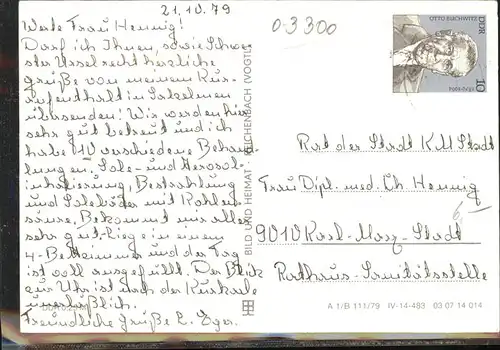 21.10.79
0-3300
Werte Frau Hennig!
Darf ich Ihnen, sowie Schwe-
ster Ursel recht herzliche
Grüße von meinem Kur-
aufenthalt in Salzelmen
übersenden! Wir werden hier
sehr gut betreut und ich
habe 10 verschiedene Behand-
lungen. Sole- und Aerosol-
inhalierung, Bestrahlung
und Solebäder mit Kohlen-
säure, Bekommt mir alles
sehr gut. Liege in einem
4-Bettzimmer und der Tag
ist voll ausgefüllt. Der Blick
zur Uhr ist nach der Kurkarte
unerläßlich.
Freundliche Grüße E. Eger.
BILD UND HEIMAT REICHENBACH (VOGTL)
OTTO BUCHWITZ
1879-1964
DDR
10
Rat der Stadt K.M. Stadt
Frau Dipl. med. Ch. Hennig
9010 Karl-Marx-Stadt
Rathaus-Sanitätsstelle
A 1/B 111/79 IV-14-483 03 07 14 014